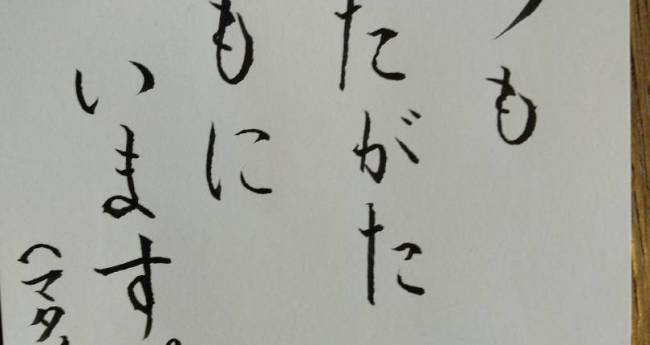 も
たがた
もに
います。
(マタ